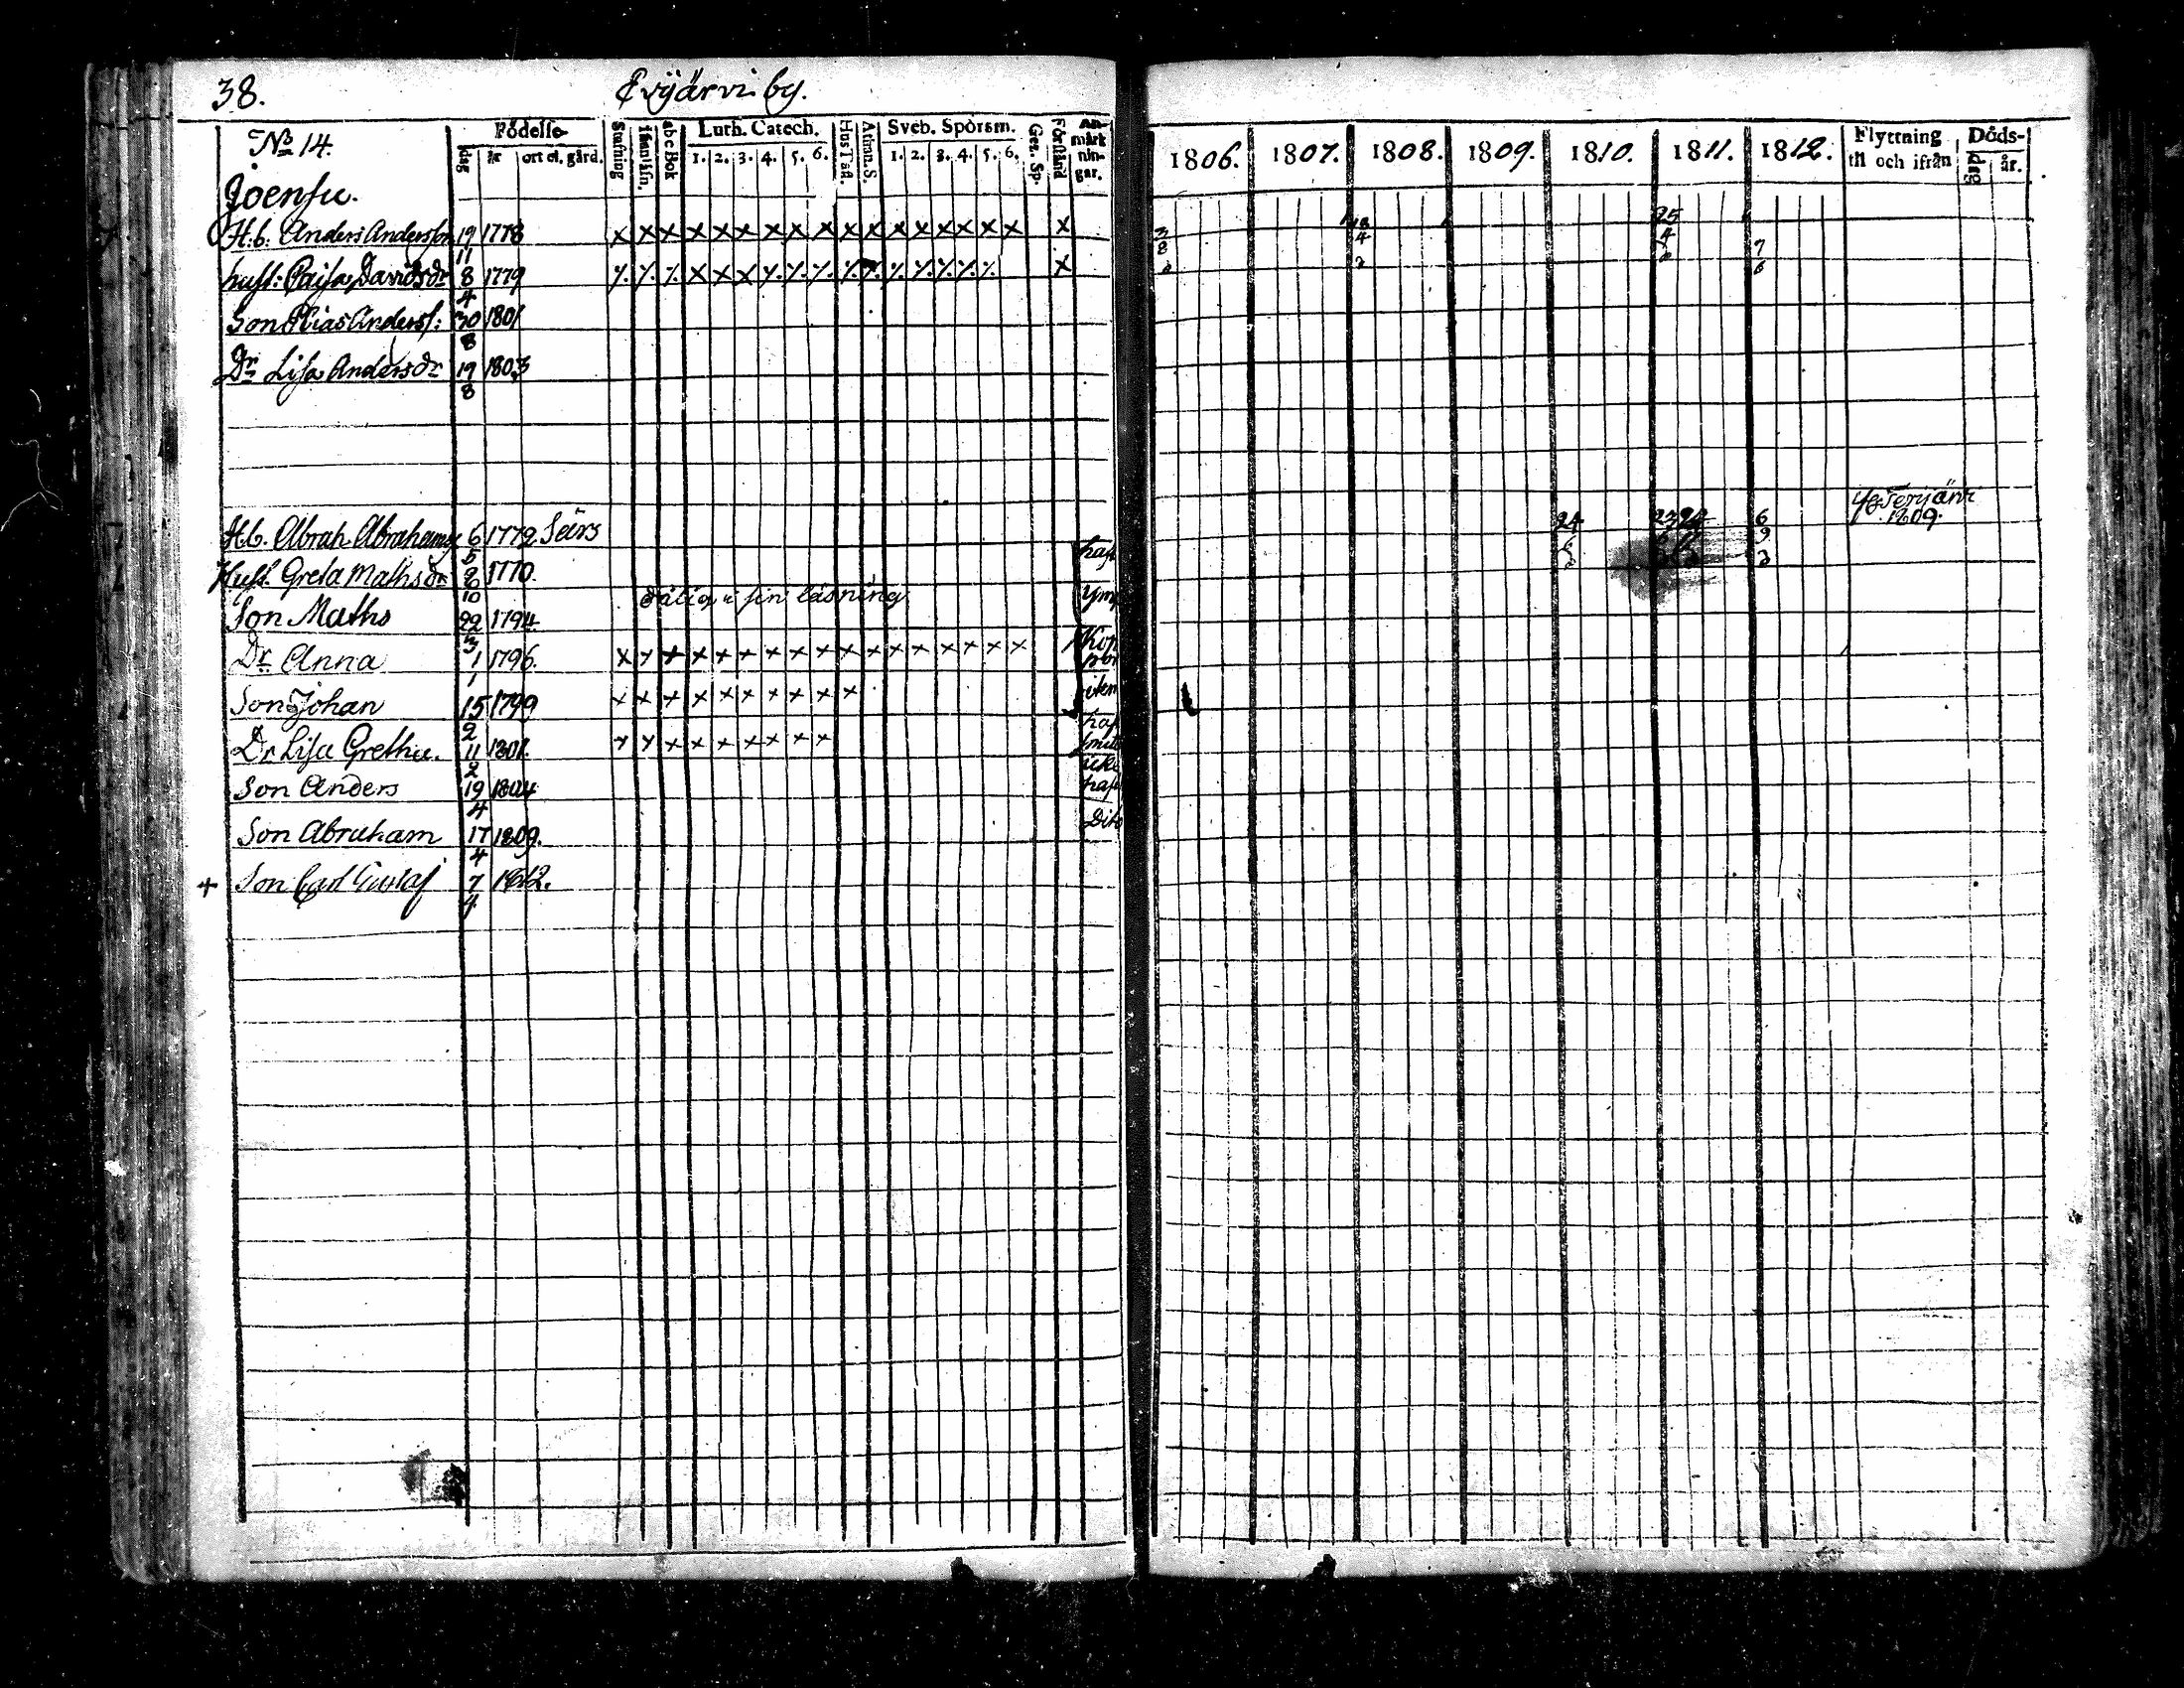 38.
Evijärvi by.
No 14.
Födelse-
dag
år
ort el. gård.
Stafning
abc Bok
Luth. Catech.
1. 2. 3. 4. 5. 6.
Hus Tafl.
Athan. S.
Sveb. Spörsm.
1. 2. 3. 4. 5. 6.
Gez. Sp.
Förstånd
An-
märk
nin-
gar.
1806. 1807. 1808. 1809. 1810. 1811. 1812.
Flyttning
til och ifrån
Döds-
dag
år.
Joensu.
H.b. Anders Andersson 19 1778 x x x x x x x x x x x x x x x x x x
11
3
8
18
4
25
4
7
6
hust: Caisa Davidsdr 8 1779
4
Son Elias Anders: 30 1801
8
Dr Lisa Andersdr 19 1803
8
H.b. Abrah Abrahams 6 1772
5
24
23 24
6
9
Terijärv
1809.
Hust. Greta Mathsdr 26 1770.
10
dålig i sin läsning
Son Maths 22 1794.
3
Dr Anna 1 1796. x x x x x x x x x x x x x x x x
1
Son Johan 15 1799 x x x x x x x x x x
2
Dr Lisa Gretha. 11 1801. x x x x x x x x x
2
Son Anders 19 1804
4
Son Abraham 17 1809.
4
Dito
+ Son Carl Gustaf 7 1812.
4